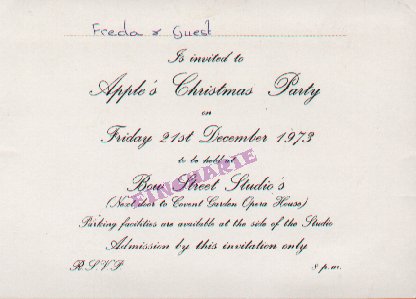 Freda & Guest
Is invited to
Apple's Christmas Party
on
Friday 21st December 1973
to be held at
Bow Street Studio's
(Next door to Covent Garden Opera House)
Parking facilities are available at the side of the Studio
Admission by this invitation only
R.S.V.P 8 p.m.
FINCHARIE